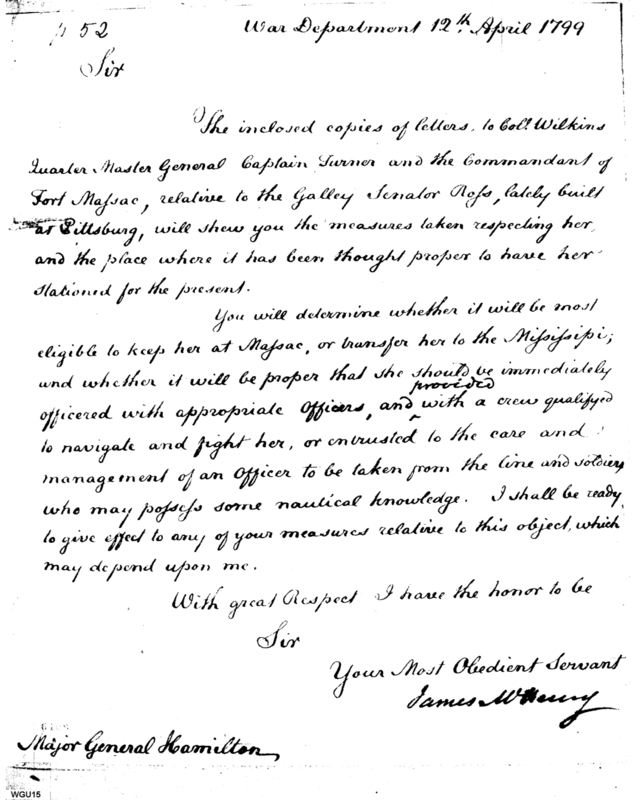 p 52
War Department 12th April 1799
Sir
The inclosed copies of letters, to Coll. Wilkins
Quarter Master General Captain Turner and the Commandant of
Fort Massac, relative to the Galley Senator Ross, lately built
at Pittsburg, will shew you the measures taken respecting her,
and the place where it has been thought proper to have her
stationed for the present.
You will determine whether it will be most
eligible to keep her at Massac, or transfer her to the Missisipi;
and whether it will be proper that she should be immediately
officered with appropriate Officers, and provided with a crew qualifyed
to navigate and fight her, or entrusted to the care and
management of an Officer to be taken from the line and soldiers
who may possess some nautical knowledge. I shall be ready
to give effect to any of your measures relative to this object, which
may depend upon me.
With great Respect I have the honor to be
Sir
Your Most Obedient Servant
James McHenry
Major General Hamilton
WGU15